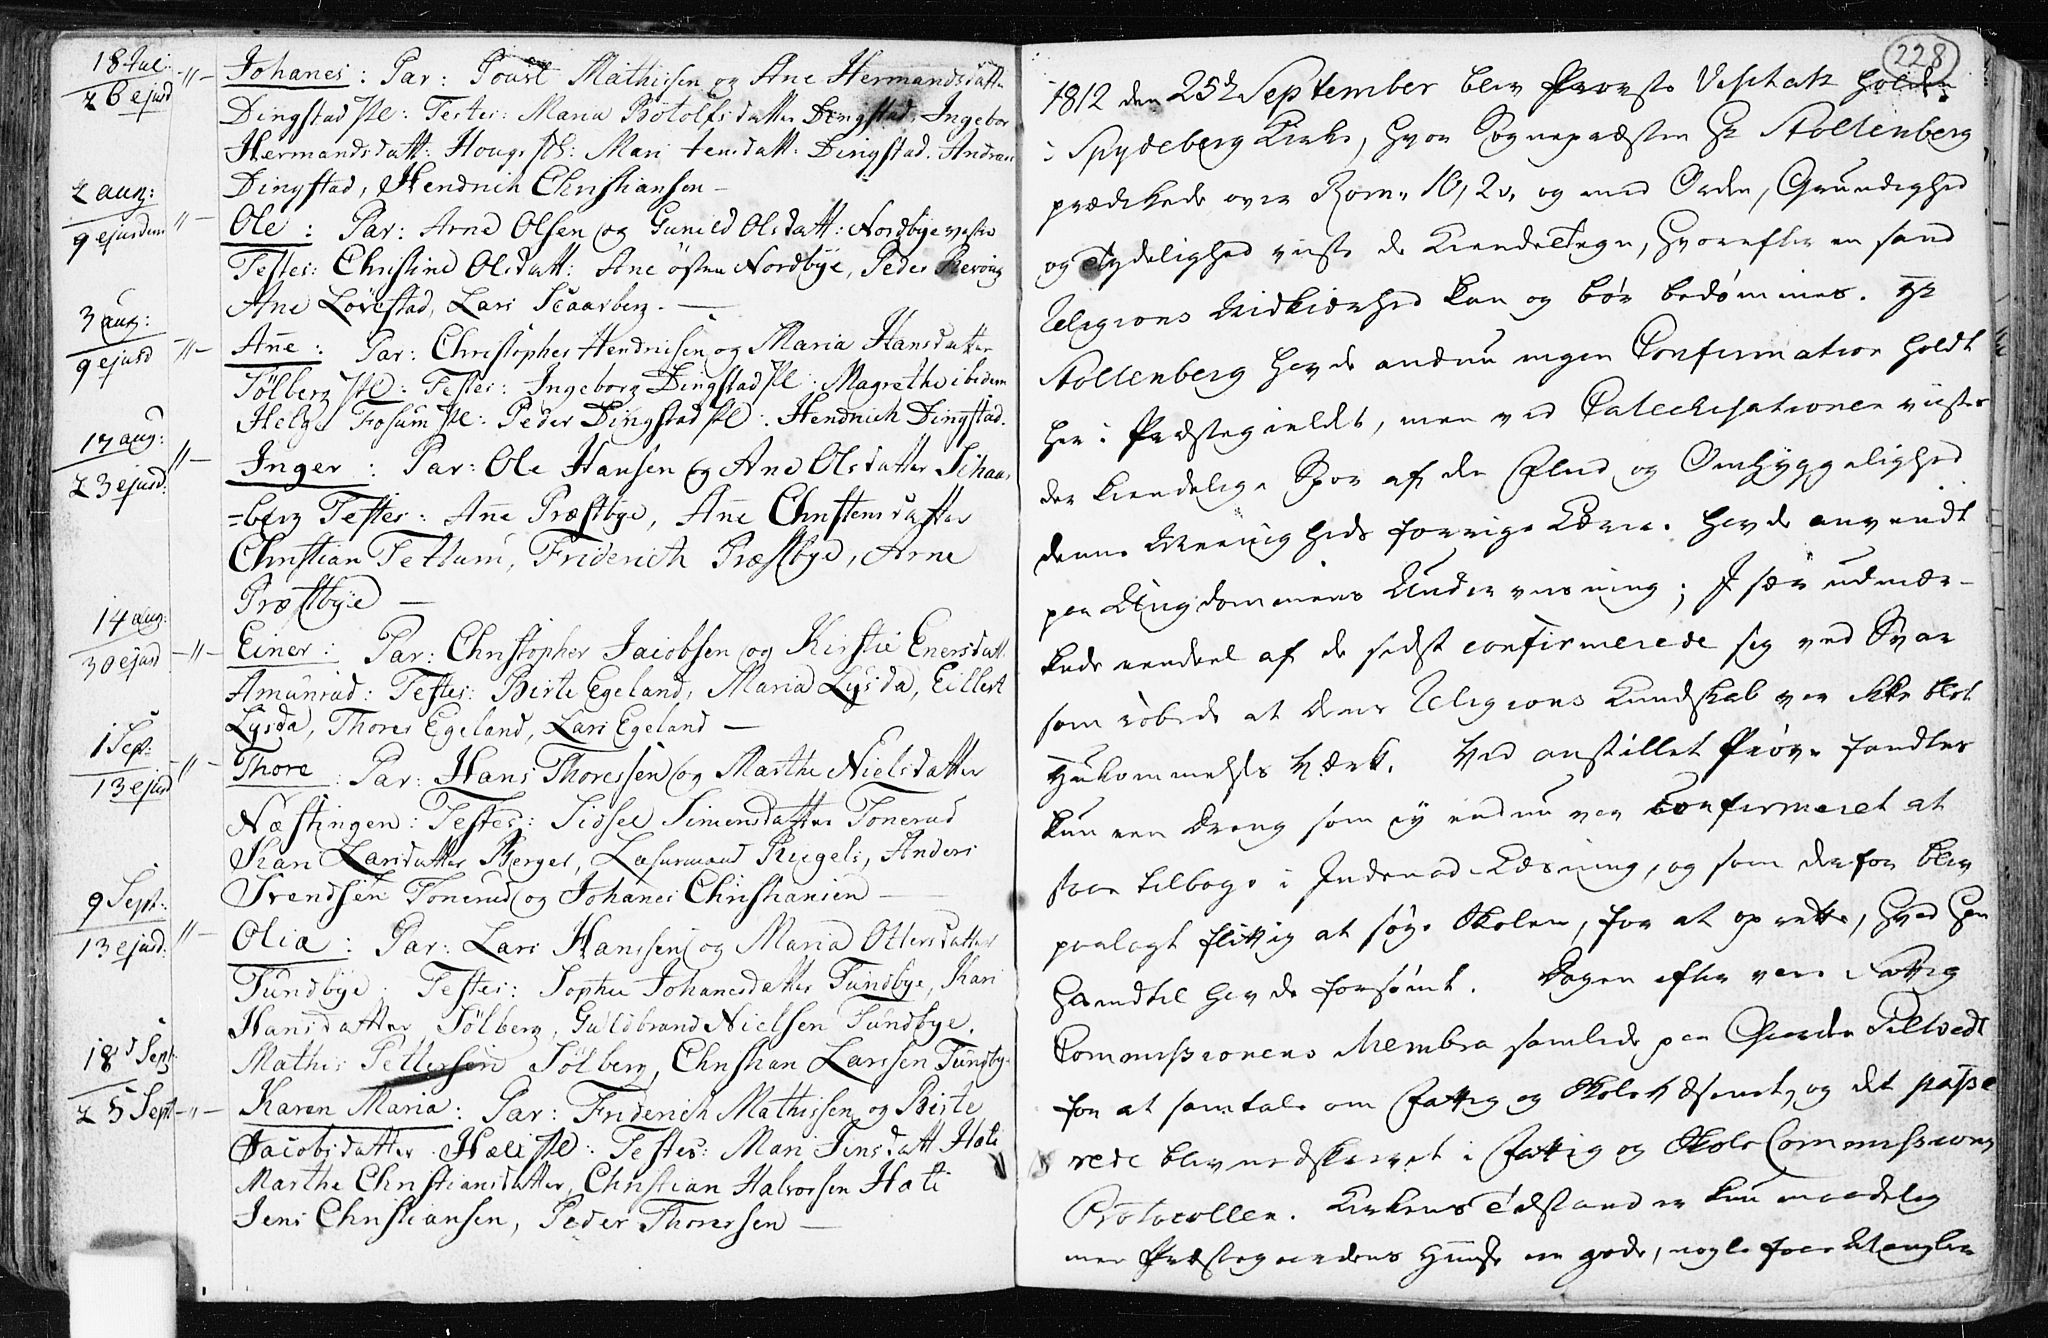 18 Jul:
26 ejusd -"- Johanes: Par: Poust Mathissen og Ane Hermandsdatter
Dingstad Pl: Testes: Maria Botolfsdatter Dingstad, Ingebor
Hermandsdatt: Houge Pl: Mari Jensdatt: Dingstad. Andreas
Dingstad, Hendrich Christiansen —
2 aug:
9 ejusdem "- Ole: Par: Arne Olsen og Gunild Olsdatt: Nordbye vestre
Testes: Christine Olsdatt: Ane østen Nordbye, Peder
Ane Lövestad, Lars Scaarberg. —
3 aug:
9 ejusd -"- Añe: Par: Christopher Hendrichsen og Maria Hansdatter
Sölberg Pl: Testes: Ingeborg Dingstad Pl: Magrethe ibidem
Helge Fosum Pl: Peder Dingstad Pl: Hendrich Dingstad.
17 aug:
23 ejusd: "- Inger: Par: Ole Hansen og Ane Olsdatter Schaar
=berg Testes: Añe Præstbye, Añe Christensdatter
Christian Tettum, Friderich Præstbye, Arne
Præstbye —
14 aug:
30 ejusd -"- Einer: Par: Christopher Jacobsen og Kirstie Enersdatt.
Amundrud: Testes: Birte Egeland, Maria Lysda, Eillert
Lysda, Thores Egeland, Lars Egeland —
1 Sept:
13 ejusd "- Thore: Par: Hans Thoressen og Marthe Nielsdatter
Næstingen: Testes: Sidsel Simensdatter Tonerud
Kari Larsdatter Berger, Ruigels, Anders
Svendsen Tonerud og Johanes Christiansen —
9 Sept:
13 ejusd. "- Olia: Par: Lars Hanssen og Maria Ottersdatter
Tundbye: Testes: Sophie Johanesdatter Tundbye, Kari
Hansdatter Sölberg, Guldbrand Nielsen Tundbye.
Mathis Pettersen Sölberg, Christian Larssen Tundbye
18d Sept
25 Sept -"- Karen Maria: Par: Friderich Mathissen og Birte
Jacobsdatter Hæli Pl: Testes: Mari Jensdatt Hæli
Marthe Christiansdatter, Christian Halvorsen Hæli
Jens Christiansen, Peder Thoressen —
228
1812 den 25de September blev Provste Visitatz holden
i Spydeberg Kirke, hvor Sognepræsten Hr Stoltenberg
prædikede over Rom. 10, 2. og med Orden, Grundighed
og Tydelighed viiste de Kiendetegn, hvorefter en sand
Religions Nidkierhed kan og bör bedömmes. Hr
Stoltenberg havde endnu ingen Confirmation holdt
her i Præstegieldet, men ved Catechisationen viistes
der kiendelige Spor af den Flid og Omhyggelighed
denne Meenigheds forrige Lærer havde anvendt
paa Ungdommens Underviisning; I sær udmær-
kede eendeel af de sidst confirmerede sig ved Svar
som röbede at deres Religions Kundskab var ikke blot
Hukommelses Værk. Ved anstillet Pröve fandtes
kun een Dreng som ey endnu var confirmeret at
staae tilbage i Indenad-Læsning, og som derfor blev
paalagt flittig at söge Skolen, for at oprette, hvad han
hendtil havde forsömt. Dagen efter vare Fattig
Commissionens Membra samlede paa Gaarden Tiltvedt
for at samtale om Fattig og Skolevæsenet, og det passe
rede blev nedskrevet i Fattig og Skole Commissions
Protocollen. Kirkens Tilstand er kun maadelig
men Præstegaardens Huuse ere gode, nogle faae Mangler